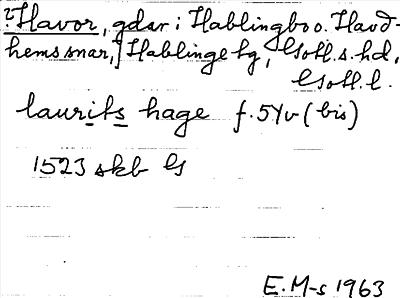 ²Havor, gdar i Hablingbo o. Havd-
hems snar, Hablinge tg, Gotl. s. hd,
Gotl. l.
laurits hage f. 54v (bis)
1523 skb G
E. M-s 1963